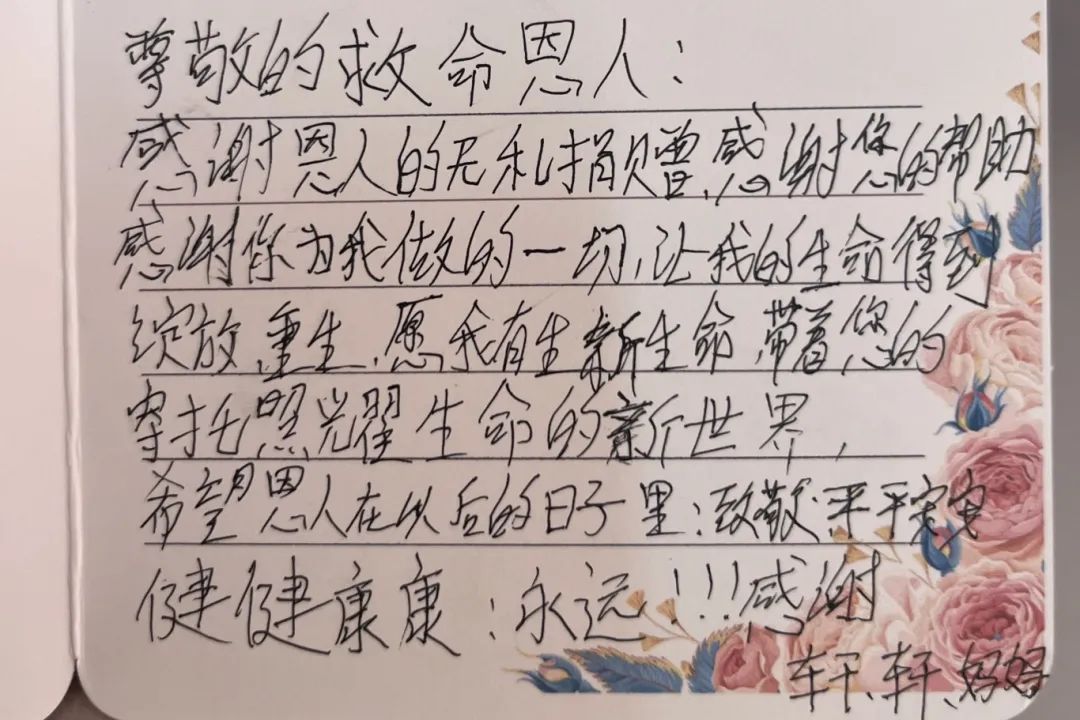 尊敬的救命恩人:
感谢恩人的无私捐赠,感谢您的帮助
感谢你为我做的一切,让我的生命得到
绽放,重生,愿我有生新生命,带着您的
寄托照耀生命的新世界,
希望恩人在以后的日子里:致敬:平平安安
健健康康:永远!!!感谢
轩、轩、妈妈